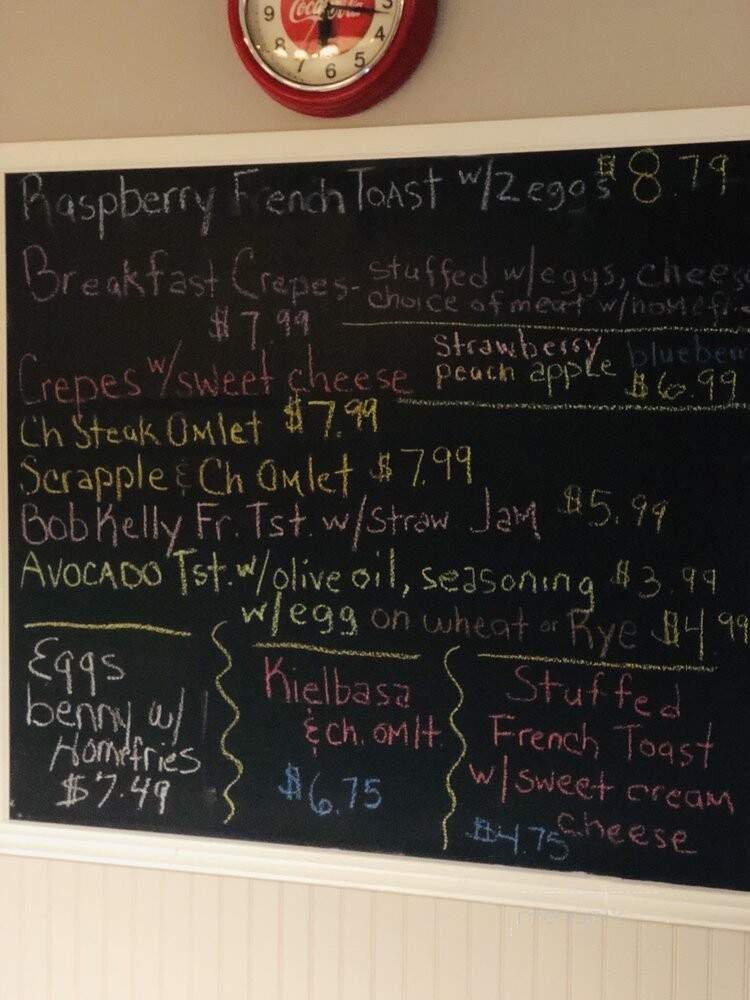 Coca-Cola
9 8 7 6 5 4 3
Raspberry French Toast w/2 eggs $8.79
Breakfast Crepes- stuffed w/eggs, chees
choice of meat w/homefri
$7.99
Crepes w/sweet cheese
strawberry blueberr
peach apple $6.99
Ch Steak Omlet $7.99
Scrapple & Ch Omlet $7.99
Bob Kelly Fr. Tst. w/straw Jam $5.99
Avocado Tst. w/olive oil, seasoning $3.99
w/egg on wheat or Rye $4.99
Eggs
benny w/
Homefries
$7.49
Kielbasa
& ch. omlt.
$6.75
Stuffed
French Toast
w/sweet cream
cheese
$4.75